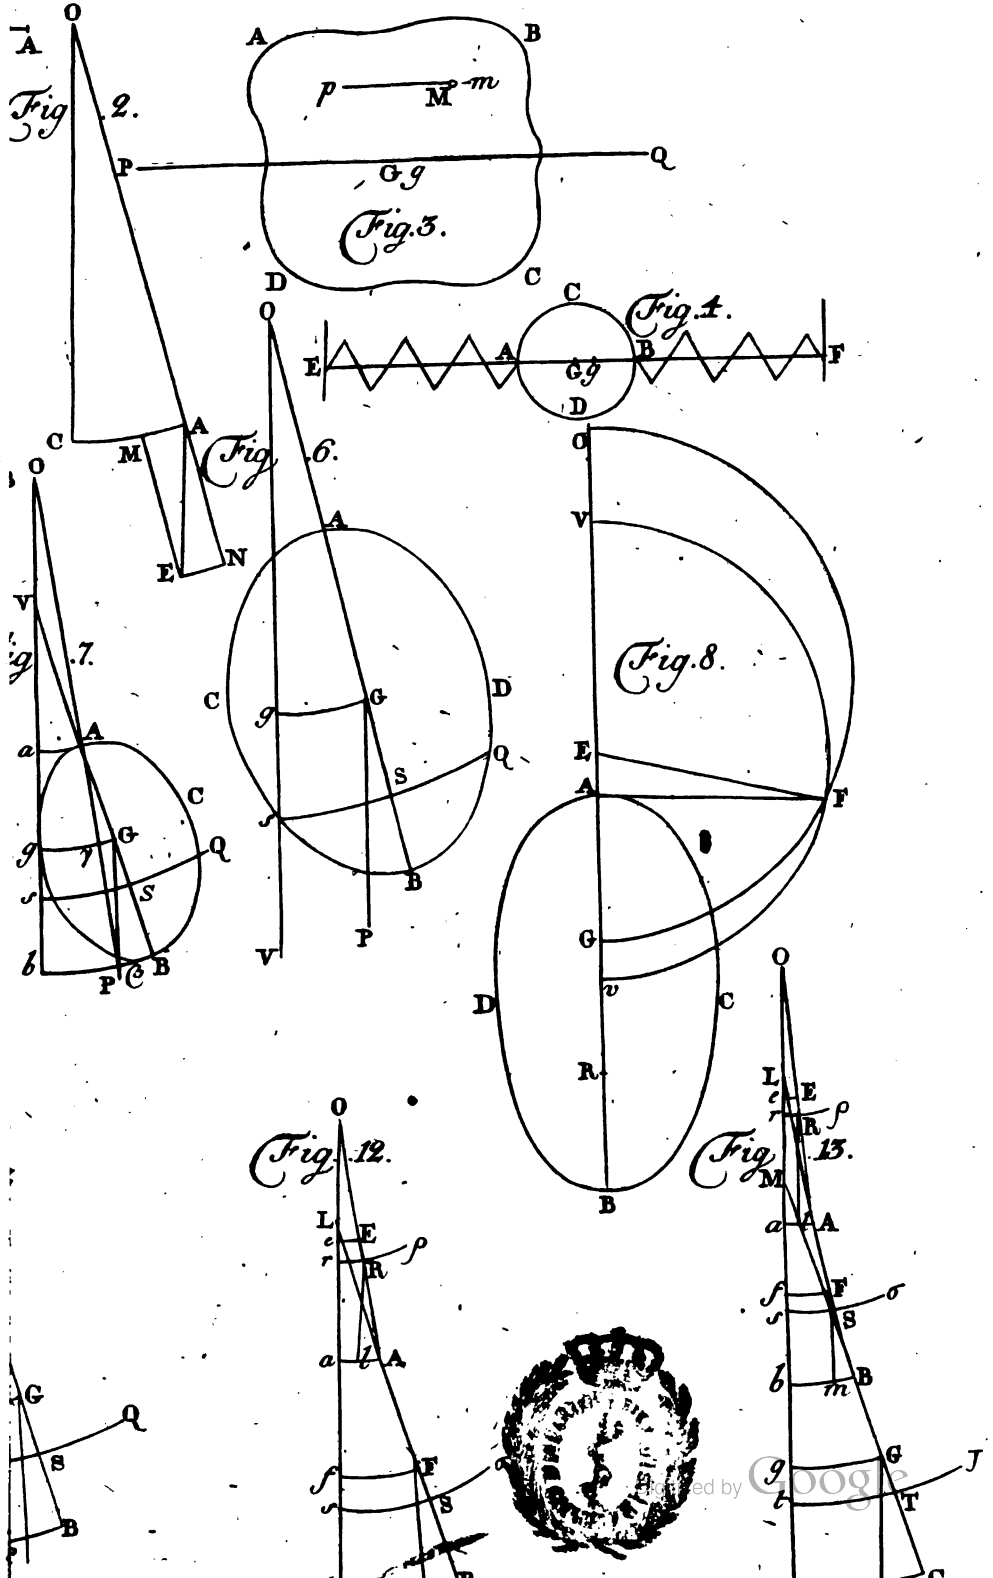 O
A
Fig. 2.
P
C
M
A
E
N
A
B
p
M
m
P
G g
Q
Fig. 3.
D
C
Fig. 4.
C
E
A
B
F
G g
D
O
Fig. 6.
A
C
D
g
G
S
Q
s
B
V
P
O
V
Fig. 7.
a
A
C
g
γ
G
Q
s
S
b
P
C
B
O
V
Fig. 8.
E
A
F
G
v
D
C
R
B
O
Fig. 12.
L
e
E
r
R
ρ
a
l
A
f
F
σ
s
S
B
O
L
e
E
r
R
ρ
Fig. 13.
M
a
l
A
f
F
σ
s
S
b
m
B
g
G
J
t
T
C
G
Q
S
B
Digitized by Google